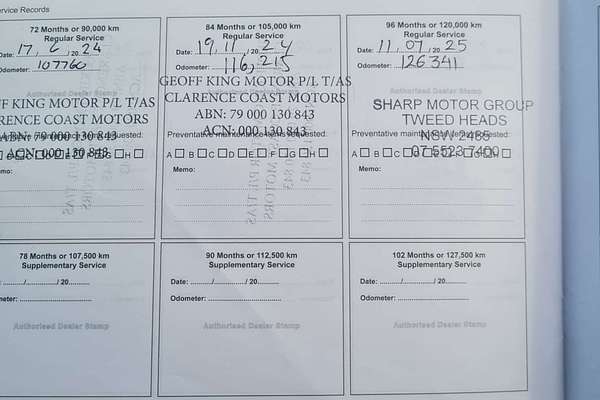 ervice Records
72 Months or 90,000 km
Regular Service
Date: 17 / 6 / 20 24
Odometer: 107760
FF KING MOTOR P/L T/AS
RENCE COAST MOTORS
ABN: 79 000 130 843
ACN: 000 130 843
quested:
D E F G H
mo:
84 Months or 105,000 km
Regular Service
Date: 19, 11 / 20 24
Odometer: 116,215
GEOFF KING MOTOR P/L T/AS
CLARENCE COAST MOTORS
ABN: 79 000 130 843
ACN: 000 130 843
Preventative maintenance items requested:
A B C D E F G H
Memo:
96 Months or 120,000 km
Regular Service
Date: 11, 07 / 20 25
Odometer: 126341
SHARP MOTOR GROUP
TWEED HEADS
NSW 2485
07 5523 7400
Preventative maintenance items requested:
A B C D E F G H
Memo:
78 Months or 107,500 km
Supplementary Service
Date: ......../............../ 20.........
meter: ..............................
Authorised Dealer Stamp
90 Months or 112,500 km
Supplementary Service
Date: ......../............../ 20.........
Odometer: ..............................
Authorised Dealer Stamp
102 Months or 127,500 km
Supplementary Service
Date: ......../............../ 20.........
Odometer: ..............................
Authorised Dealer Stamp